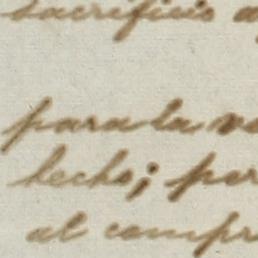 sacrificio
para la
hecho; por
al compr